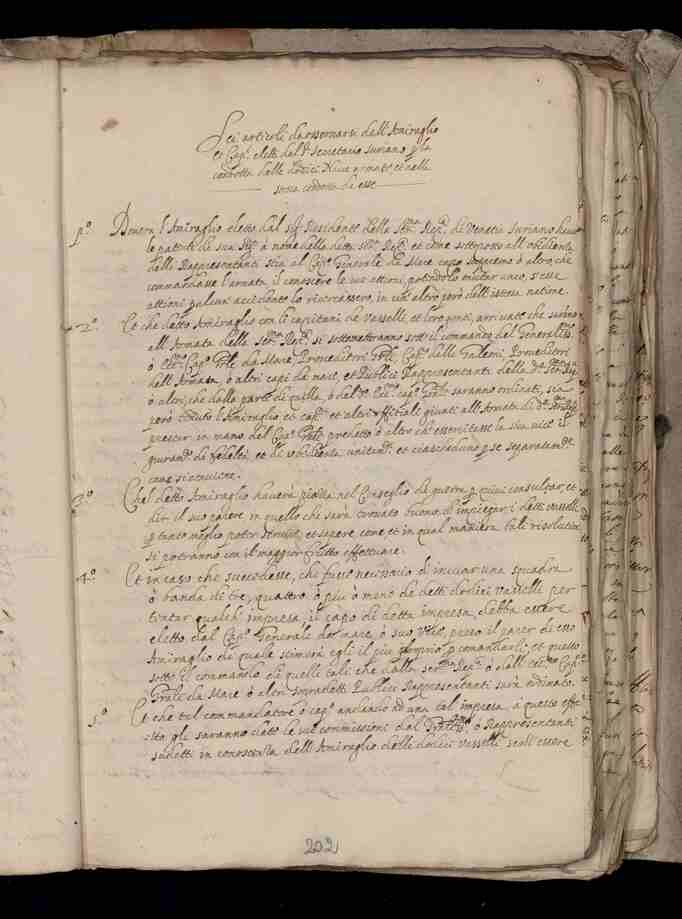 Sei articoli da osservarsi dall Amiraglio
et Capi eletti dal Sr Secretario Suriano p la
condotta delle dodici Nave armate et nella
stessa condotta di esse
1º Dovera l'Amiraglio eletto dal Sigr Residente della Serma Repca di Venetia Suriano
le patenti da sua Sigria à nome della detta Serma Repca et come sottoposto all obidienza
delli Rappresentanti sia al Capo Generale da Mare capo supremo ò altro che
commandasse l'armata il conoscere le sue attioni, potendolo mutar anco, s'esse
attioni p alcun accidente lo ricercassero, in un' altro però dell istessa natione
2º Et che detto Amiraglio con li capitani de vasselli, et loro genti, arrivate che sarano
all Armata della Serma Repca si sottometteranno sotto il commando del Generaliss:
ò Capo Gnle da Mare Proveditori Capo delle Galeazze, Proveditori
dell Armata, ò altri capi da mare, et Publici Rappresentanti della Serma Repca
ò altri, che dalla parte di quella, ò dal Capo Genle saranno ordinati, sia
però tenuto l'Amiraglio et capi et altri officiali giunti all Armata di Serma Repca
prestar in mano del Capo Genle predetto ò altro ch' essercitasse la sua vice il
giuramto di fedeltà, et di obidienza unitamte et ciascheduno p se separatamte
come si conviene.
3º Chel detto Amiraglio haverà piazza nel Conseglio di guerra p quivi consultar, et
dir il suo parere in quello che sarà trovato buono, di impiegar i detti vasselli
p tanto meglio poter servire, et sapere come et in qual maniera tali risolutioni
si potranno con il maggior frutto effettuare.
4º Et in caso che succedesse, che fusse necessario di inviar una squadra
ò banda di tre, quattro ò più ò meno de detti dodici vasselli per
tentar qualch' impresa, il capo di detta impresa, debba essere
eletto dal Capo Generale da mare, ò suo preso il parer di esso
Amiraglio di quale stimerà egli il più proprio p comandarli, et questo
sotto il commando di quelli tali che dalla Serma Repca ò dall Capo
Gnale da Mare ò altri sopradetti Publici Rappresentanti sarà ordinato.
5º Et che tal commandatore ò capo andando ad una tal impresa, à questo effe-
-tto gli saranno date le sue commissioni dal ò Rappresentanti
sudetti in conoscenza dell Amiraglio delli dodici vasselli senza essere
202